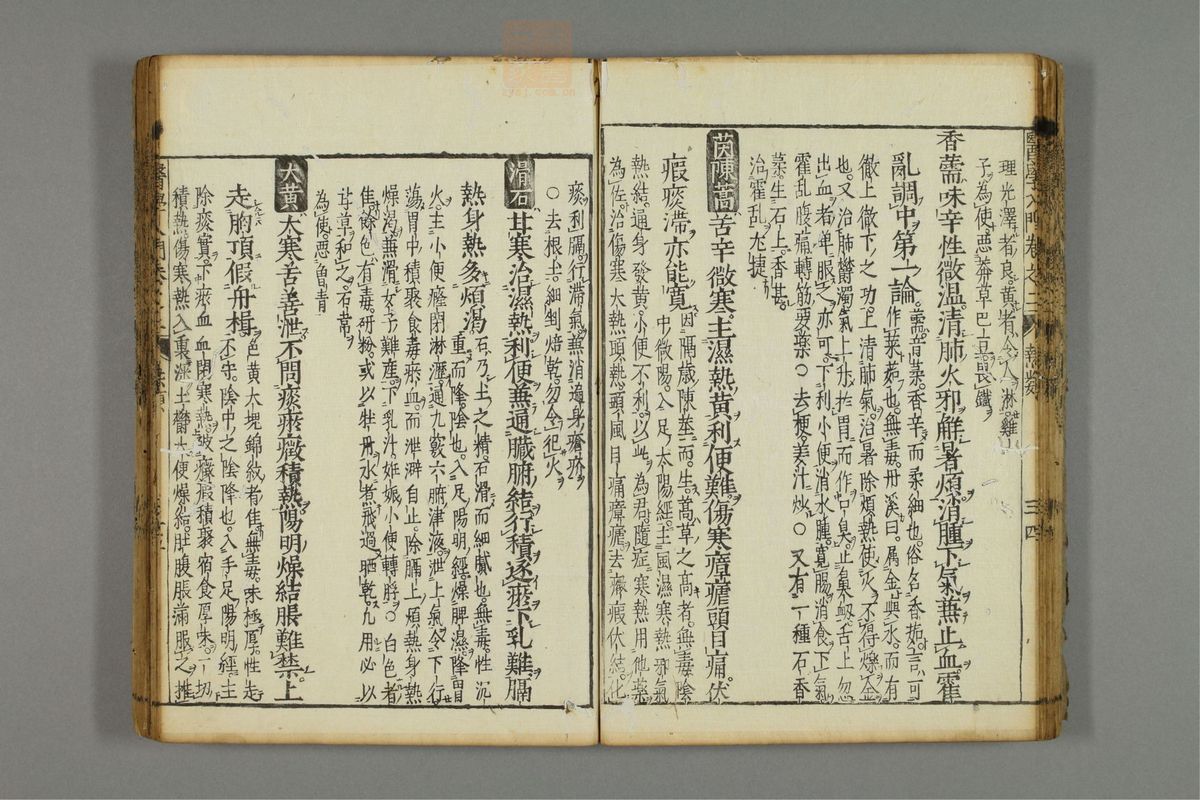 理光澤者良黄者令人淋雞
子為使惡莽草巴豆畏鐵
香薷味辛性微温清肺火邪解暑煩消腫下氣無止血霍
亂調中第一論
薷音菜香辛而柔細也俗名香茹言可
作菜茹也無毒丹溪曰属金與水而有
徹上徹下之功上清肺氣治暑除煩熱使火不得爍金
也又治肺欝濁氣上升於胃而作口臭止鼻衂舌上忽
出血者单服之亦可下利小便消水腫寛腸消食下氣
霍乱腹痛轉筋要藥○去梗姜汁炒○又有一種石香
菜生石上香甚
治霍乱尤捷
茵陳蒿 苦辛微寒主濕熱黄利便難傷寒瘴瘧頭目痛伏
瘕痰滯亦能寛
因隔歳陳莖而生蒿草之高者無毒陰
中微陽入足太陽經主風濕寒熱邪氣
熱結通身發黄小便不利以此為君隨症寒熱用他藥
為佐治傷寒大熱頭熱頭風目痛瘴瘧去癥瘕伏結化
痰利膈行滯氣無消遍身瘡疥
○去根土細剉焙乾勿令犯火
滑石 甘寒治濕熱利便無通臓腑結行積逐瘀下乳難膈
熱身熱多煩渴
石乃土之精石滑而細膩也無毒性沉
重而降陰也入足陽明經燥脾濕降冐
火主小便癃閉淋瀝通九竅六腑津液泄上氣令下行
蕩胃中積聚食毒瘀血而泄澼自止除膈上煩熱身熱
燥渴無濁女子難産下乳汁妊娠小便轉脬○白色者
佳餘色有毒研粉或以牡丹水煮飛過晒乾凡用必以
甘草和之石常
為使惡曾青
大黄 大寒苦善泄不問痰瘀癥積熱陽明燥結脹難禁上
走胸頂假舟楫
色黄大塊錦紋者佳無毒味極厚性走
不守陰中之陰降也入手足陽明經主
除痰實下瘀血血閉寒熱破癥瘕積聚宿食厚味一切
積熱傷寒熱入裏濕土欝大便燥結肚腹脹滿服之推